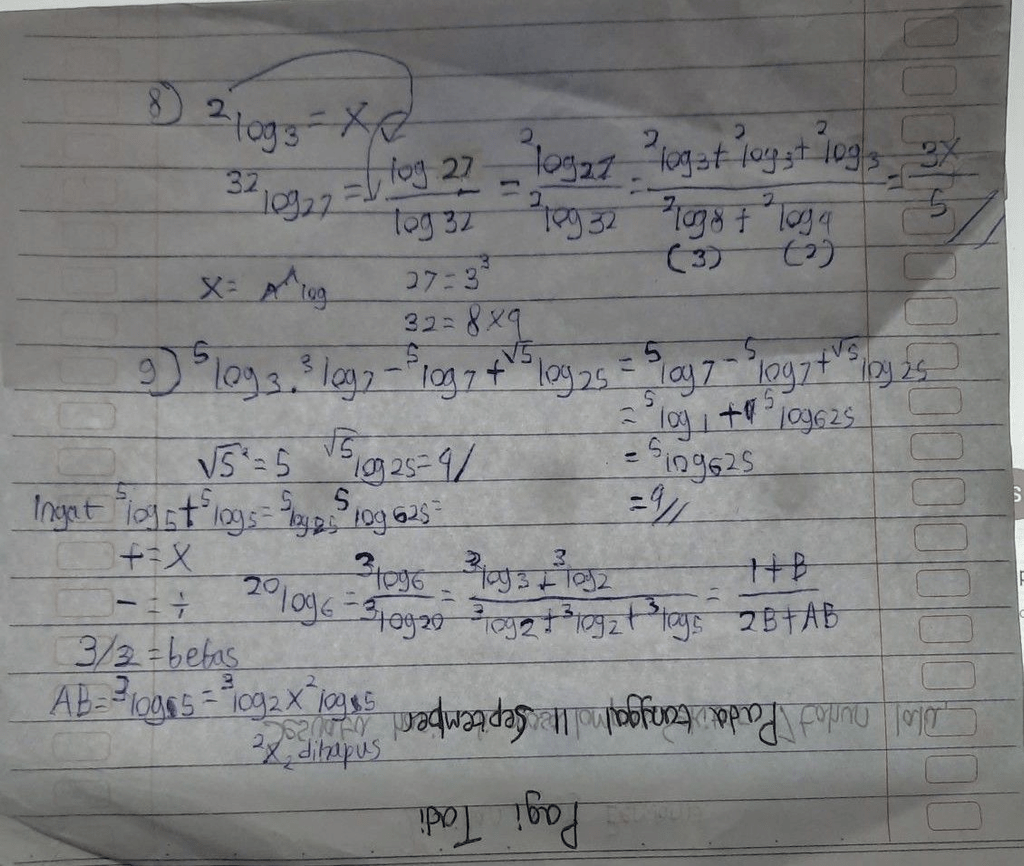 8) ²log3 = x
³²log27 = log 27 / log 32 = ²log27 / ²log32 = ²log3 + ²log3 + ²log3 / ²log8 + ²log4 = 3x / 5 //
(3) (2)
x = A^log 27 = 3³
32 = 8 x 4
9) ⁵log3 . ³log7 - ⁵log7 + √⁵log25 = ⁵log7 - ⁵log7 + √⁵log25
= ⁵log1 + ⁵log625
√5² = 5 √⁵log25 = 4/ = ⁵log625
Ingat ⁵log5 + ⁵log5 = ⁵log25 ⁵log625 = = 4//
+ = x
- = ÷ ²⁰log6 = ³log6 / ³log20 = ³log3 + ³log2 / ³log2 + ³log2 + ³log5 = 1 + B / 2B + AB
3/2 = bebas
AB = ³log5 = ³log2 x ²log5
Pada tanggal 11 September
x² dihapus
Pagi Tadi